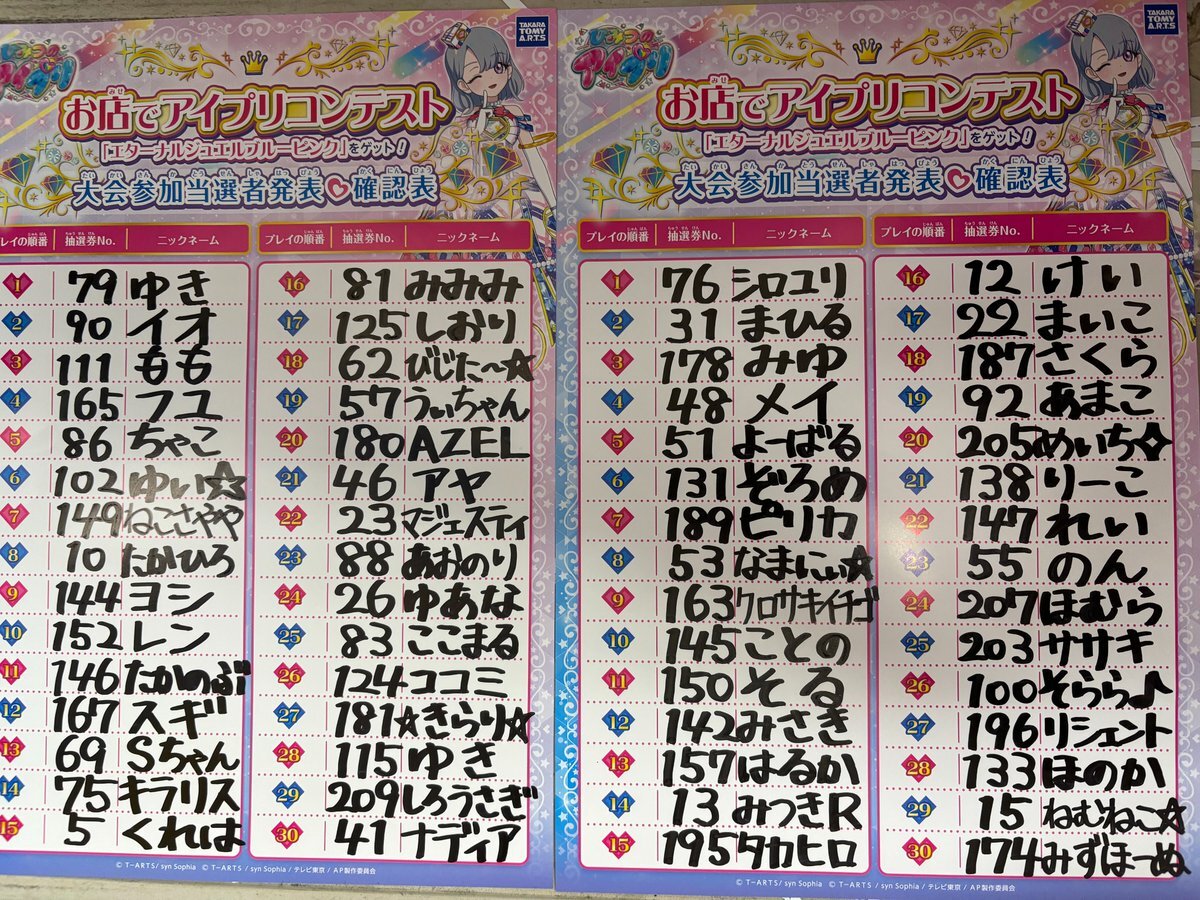 TAKARA TOMY A.R.T.S
ひみつのアイプリ
お店でアイプリコンテスト
「エターナルジュエルブルーピンク」をゲット!
大会参加当選者発表♡確認表
プレイの順番 抽選券No. ニックネーム
1 79 ゆき
2 90 イオ
3 111 もも
4 165 フユ
5 86 ちゃこ
6 102 ゆい☆
7 149 ねこさやや
8 10 たかひろ
9 144 ヨシ
10 152 レン
11 146 たかのぶ
12 167 スギ
13 69 Sちゃん
14 75 キラリス
15 5 くれは
プレイの順番 抽選券No. ニックネーム
16 81 みみみ
17 125 しおり
18 62 びじた〜☆
19 57 うぃちゃん
20 180 AZEL
21 46 アヤ
22 23 マジェスティ
23 88 あおのり
24 26 ゆあな
25 83 ここまる
26 124 ココミ
27 181 ☆きらり☆
28 115 ゆき
29 209 しろうさぎ
30 41 ナディア
© T-ARTS / syn Sophia © T-ARTS / syn Sophia / テレビ東京 / AP製作委員会
TAKARA TOMY A.R.T.S
ひみつのアイプリ
お店でアイプリコンテスト
「エターナルジュエルブルーピンク」をゲット!
大会参加当選者発表♡確認表
プレイの順番 抽選券No. ニックネーム
1 76 シロユリ
2 31 まひる
3 178 みゆ
4 48 メイ
5 51 よーばる
6 131 ぞろめ
7 189 ピリカ
8 53 なまにぃ☆
9 163 クロサキイチゴ
10 145 ことの
11 150 そる
12 142 みさき
13 157 はるか
14 13 みつきR
15 195 タカヒロ
プレイの順番 抽選券No. ニックネーム
16 12 けい
17 22 まいこ
18 187 さくら
19 92 あまこ
20 205 めいち✧
21 138 りーこ
22 147 れい
23 55 のん
24 207 ほむら
25 203 ササキ
26 100 そらら♪
27 196 リシェント
28 133 ほのか
29 15 ねむねこ☆
30 174 みずほーぬ
© T-ARTS / syn Sophia © T-ARTS / syn Sophia / テレビ東京 / AP製作委員会